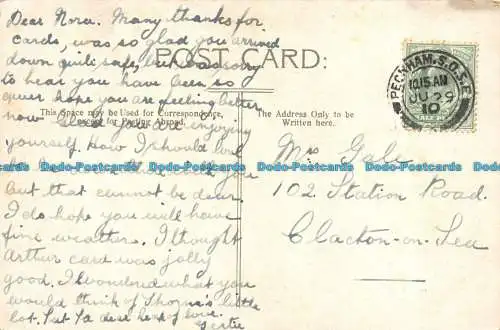 Dear Nora. Many thanks for
cards, was so glad you arrived
down quite safe, but was sorry
to hear you have been so
queer hope you are feeling better
now Glad you are enjoying
yourself. How I should love
to
but that cannot be dear.
I do hope you will have
fine weather. I thought
Arthurs card was jolly
good. I wondered what you
would think of Thorne's little
lot. Ta Ta dear heaps of love.
Gertie
POST CARD:
This Space may be Used for Correspondence,
Except for Posting Abroad.
The Address Only to be
Written here.
PECKHAM. S.O. S.E.
10.15 AM
JU 29
10
HALF PENNY
Miss Gale
102 Station Road.
Clacton-on-Sea
Dodo-Postcards Dodo-Postcards Dodo-Postcards Dodo-Postcards Dodo-Postcards